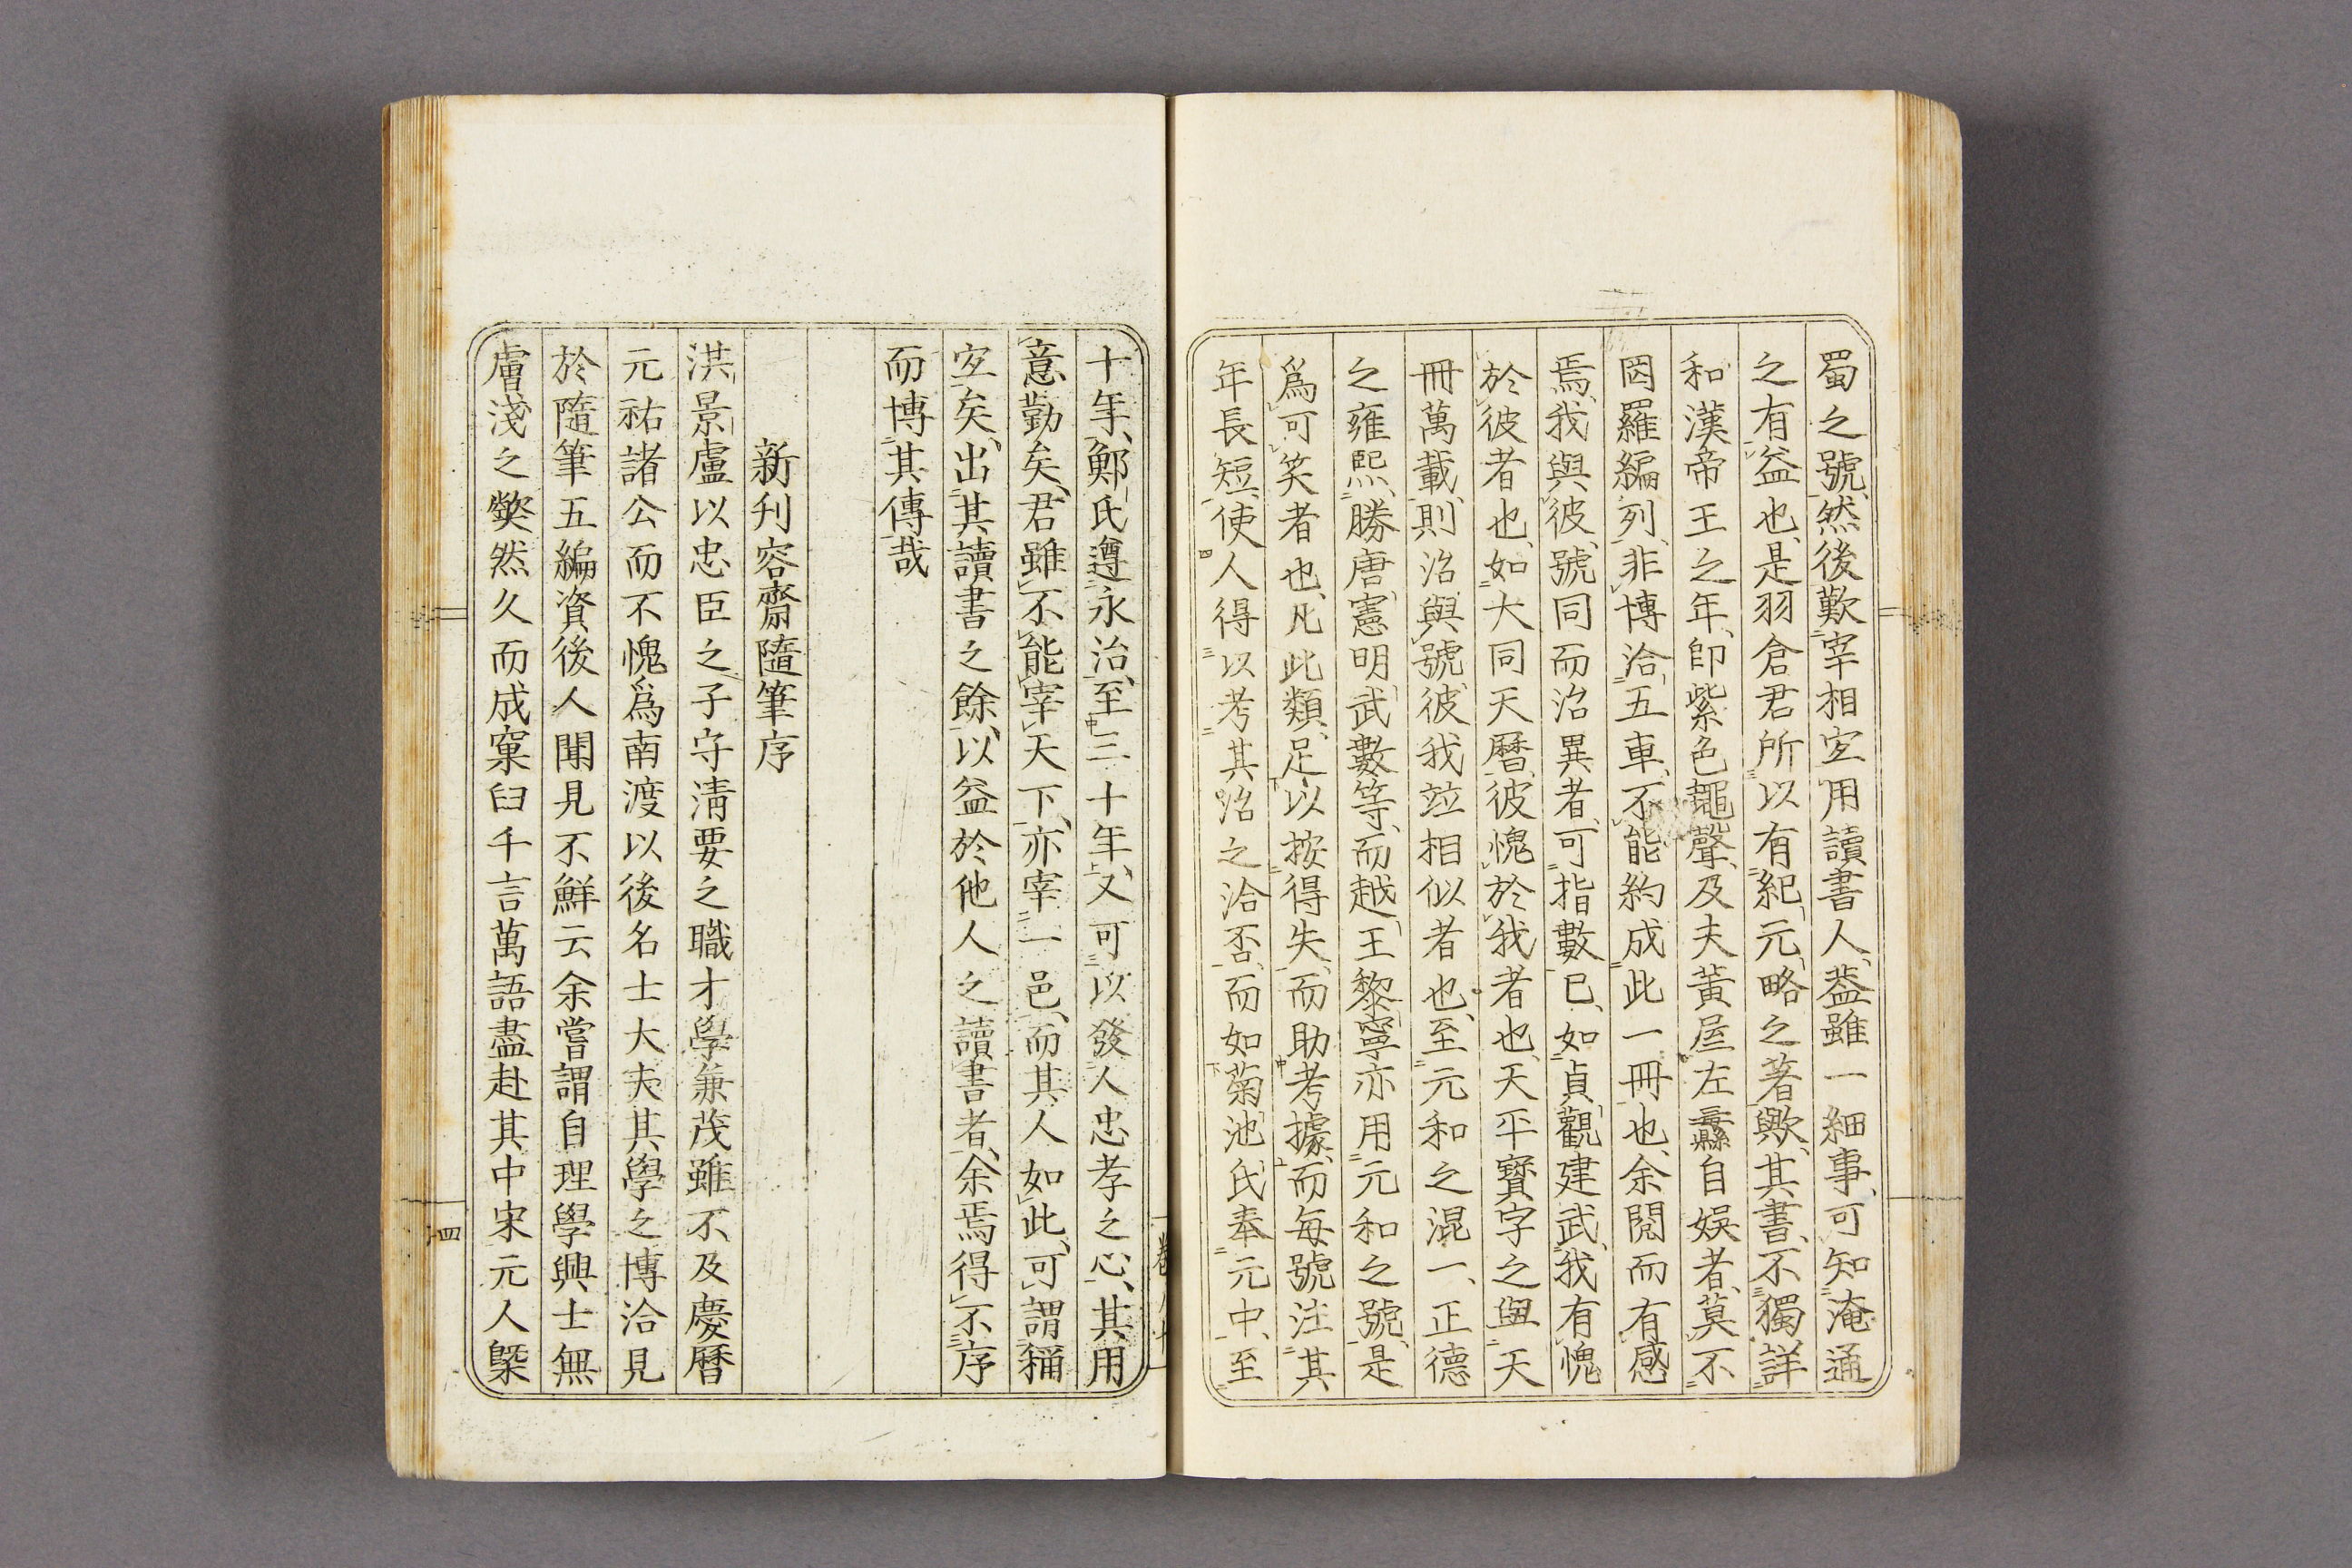 蜀之號、然後歎宰相宜用讀書人、蓋雖一細事、可知淹通
之有益也、是羽倉君所以有紀元略之著歟、其書、不獨詳
和漢帝王之年、卽紫色䵷聲、及夫黃屋左纛自娛者、莫不
罔羅編列、非博洽五車、不能約成此一冊也、余閱而有感
焉、我與彼、號同而治異者、可指數已、如貞觀建武、我有愧
於彼者也、如大同天曆、彼愧於我者也、天平寶字之與天
冊萬載、則治與號、彼我竝相似者也、至元和之混一、正德
之雍熙、勝唐憲明武數等、而越王黎寧亦用元和之號、是
爲可笑者也、凡此類、足以按得失、而助考據、而每號注其
年長短、使人得以考其治之洽否、而如菊池氏奉元中、至
十年、鄭氏遵永治、至三十年、又可以發人忠孝之心、其用
意勤矣、君雖不能宰天下、亦宰一邑、而其人如此、可謂稱
宜矣、出其讀書之餘、以益於他人之讀書者、余焉得不序
而博其傳哉
新刋容齋隨筆序
洪景盧以忠臣之子守淸要之職才學兼茂雖不及慶曆
元祐諸公而不愧爲南渡以後名士大夫其學之博洽見
於隨筆五編資後人聞見不鮮云余嘗謂自理學興士無
膚淺之獘然久而成窠臼千言萬語盡赴其中宋元人槩
四